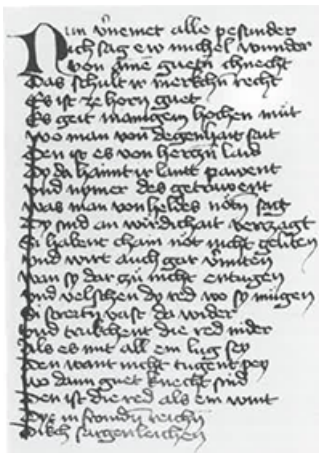 Nun v̄nemet alle besunder
Ich sag ew michel wunder
von aine guetn̄ chnecht
Das schult ir merkchn̄ recht
Es ist ze horn̄ guet
Es geit manigem hochen mut
wo man von degenhait sait
Den ist es von herczn̄ laid
Dy da haimt ir lantt pawent
vnd nymer des getrawent
was man von heldes noten sagt
Dy sind an wirdichait verczagt
Si habent chain not nicht geliten
vnd wirt auch gar v̄miten
wan sy dar zu nicht entugen
vnd velschen dy red wo sy mugen
Si streitn̄ vast da wider
vnd drukchent die red nider
Als es mit all ein lug sey
Den want nicht tugent pey
wo dann guet knecht sind
Den ist die red als ein wint
Dye in fromdn̄ reichn̄
Dikch